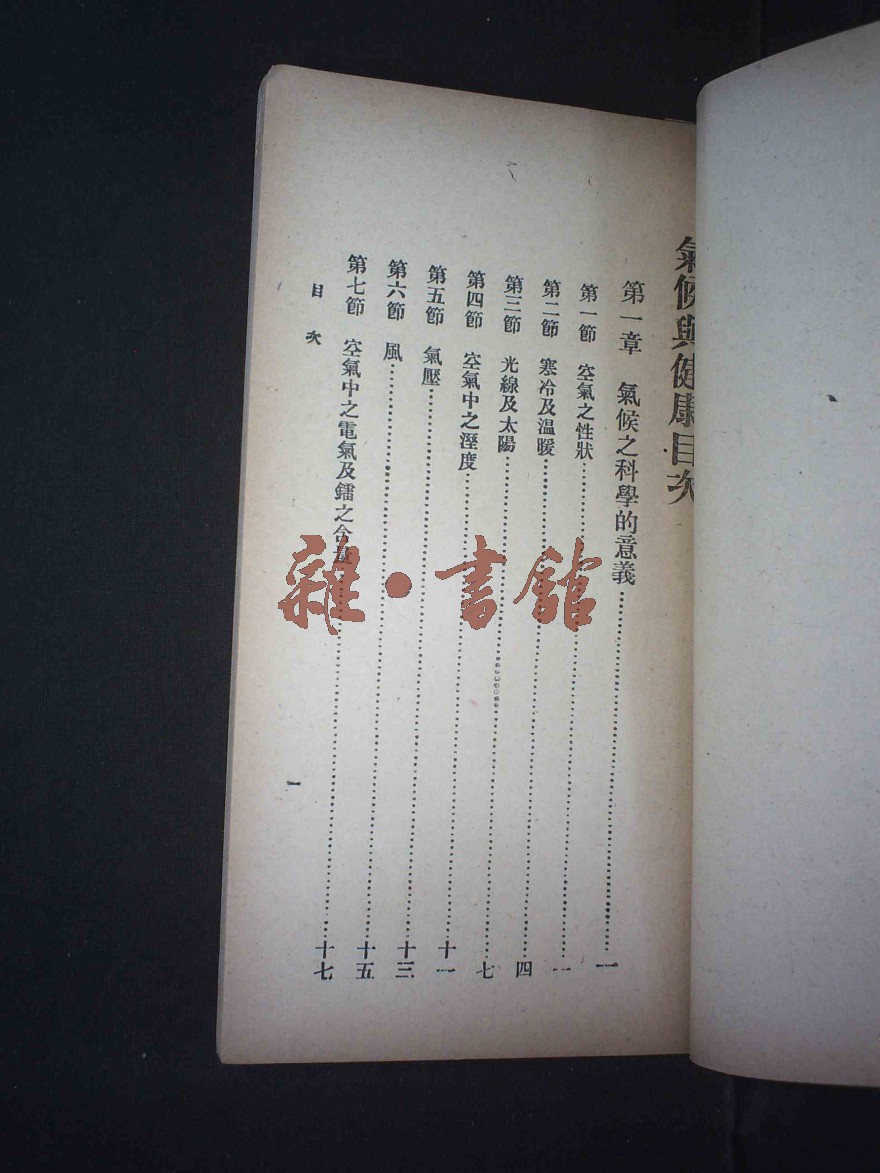 氣候與健康目次
第一章 氣候之科學的意義…………一
第一節 空氣之性狀…………一
第二節 寒冷及温暖…………四
第三節 光線及太陽…………七
第四節 空氣中之溼度…………十一
第五節 氣壓…………十三
第六節 風…………十五
第七節 空氣中之電氣及鐳之含量…………十七
目次
一
雜·書館